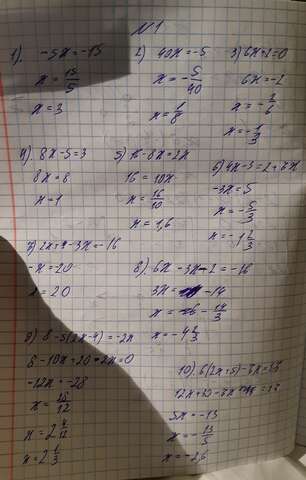 №1
1). -5x=-15
x=15/5
x=3
2) 40x=-5
x=-5/40
x=1/8
3) 6x+2=0
6x=-2
x=-2/6
x=-1/3
4). 8x-5=3
8x=8
x=1
5) 16-8x=2x
16=10x
x=16/10
x=1,6
6) 4x-3=2+7x
-3x=5
x=-5/3
x=-1 2/3
7) 2x+4-3x=-16
-x=20
x=20
8) 6x-3x-2=-16
3x= -14
x= -14/3
x=-4 2/3
9) 8-5(2x-4)=-2x
8-10x+20+2x=0
-12x=-28
x=28/12
x=2 4/12
x=2 1/3
10). 6(2x+5)-7x=17
12x+30-7x =17
5x=-13
x=-13/5
x=-2,6